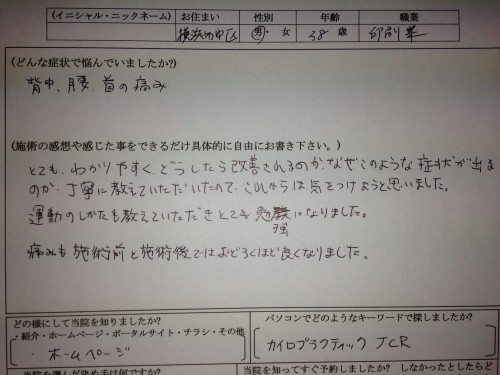 (イニシャル・ニックネーム) お住まい 性別 年齢 職業
横浜市中区 男・女 38 歳 印刷業
(どんな症状で悩んでいましたか?)
背中、腰、首の痛み
(施術の感想や感じた事をできるだけ具体的に自由にお書き下さい。)
とても、わかりやすく、どうしたら改善されるのか、なぜこのような、症状が出る
のか、丁寧に教えていただいたので、これからは気をつけようと思いました。
運動のしかたも教えていただきとても勉強になりました。
痛みも施術前と施術後ではおどろくほど良くなりました。
どの様にして当院を知りましたか?
・紹介・ホームページ・ポータルサイト・チラシ・その他
・ホームページ
パソコンでどのようなキーワードで探しましたか?
カイロプラクティック JCR
当院を選んだ決め手は何ですか?
当院を知ってすぐ予約しましたか? しなかったとしたらど